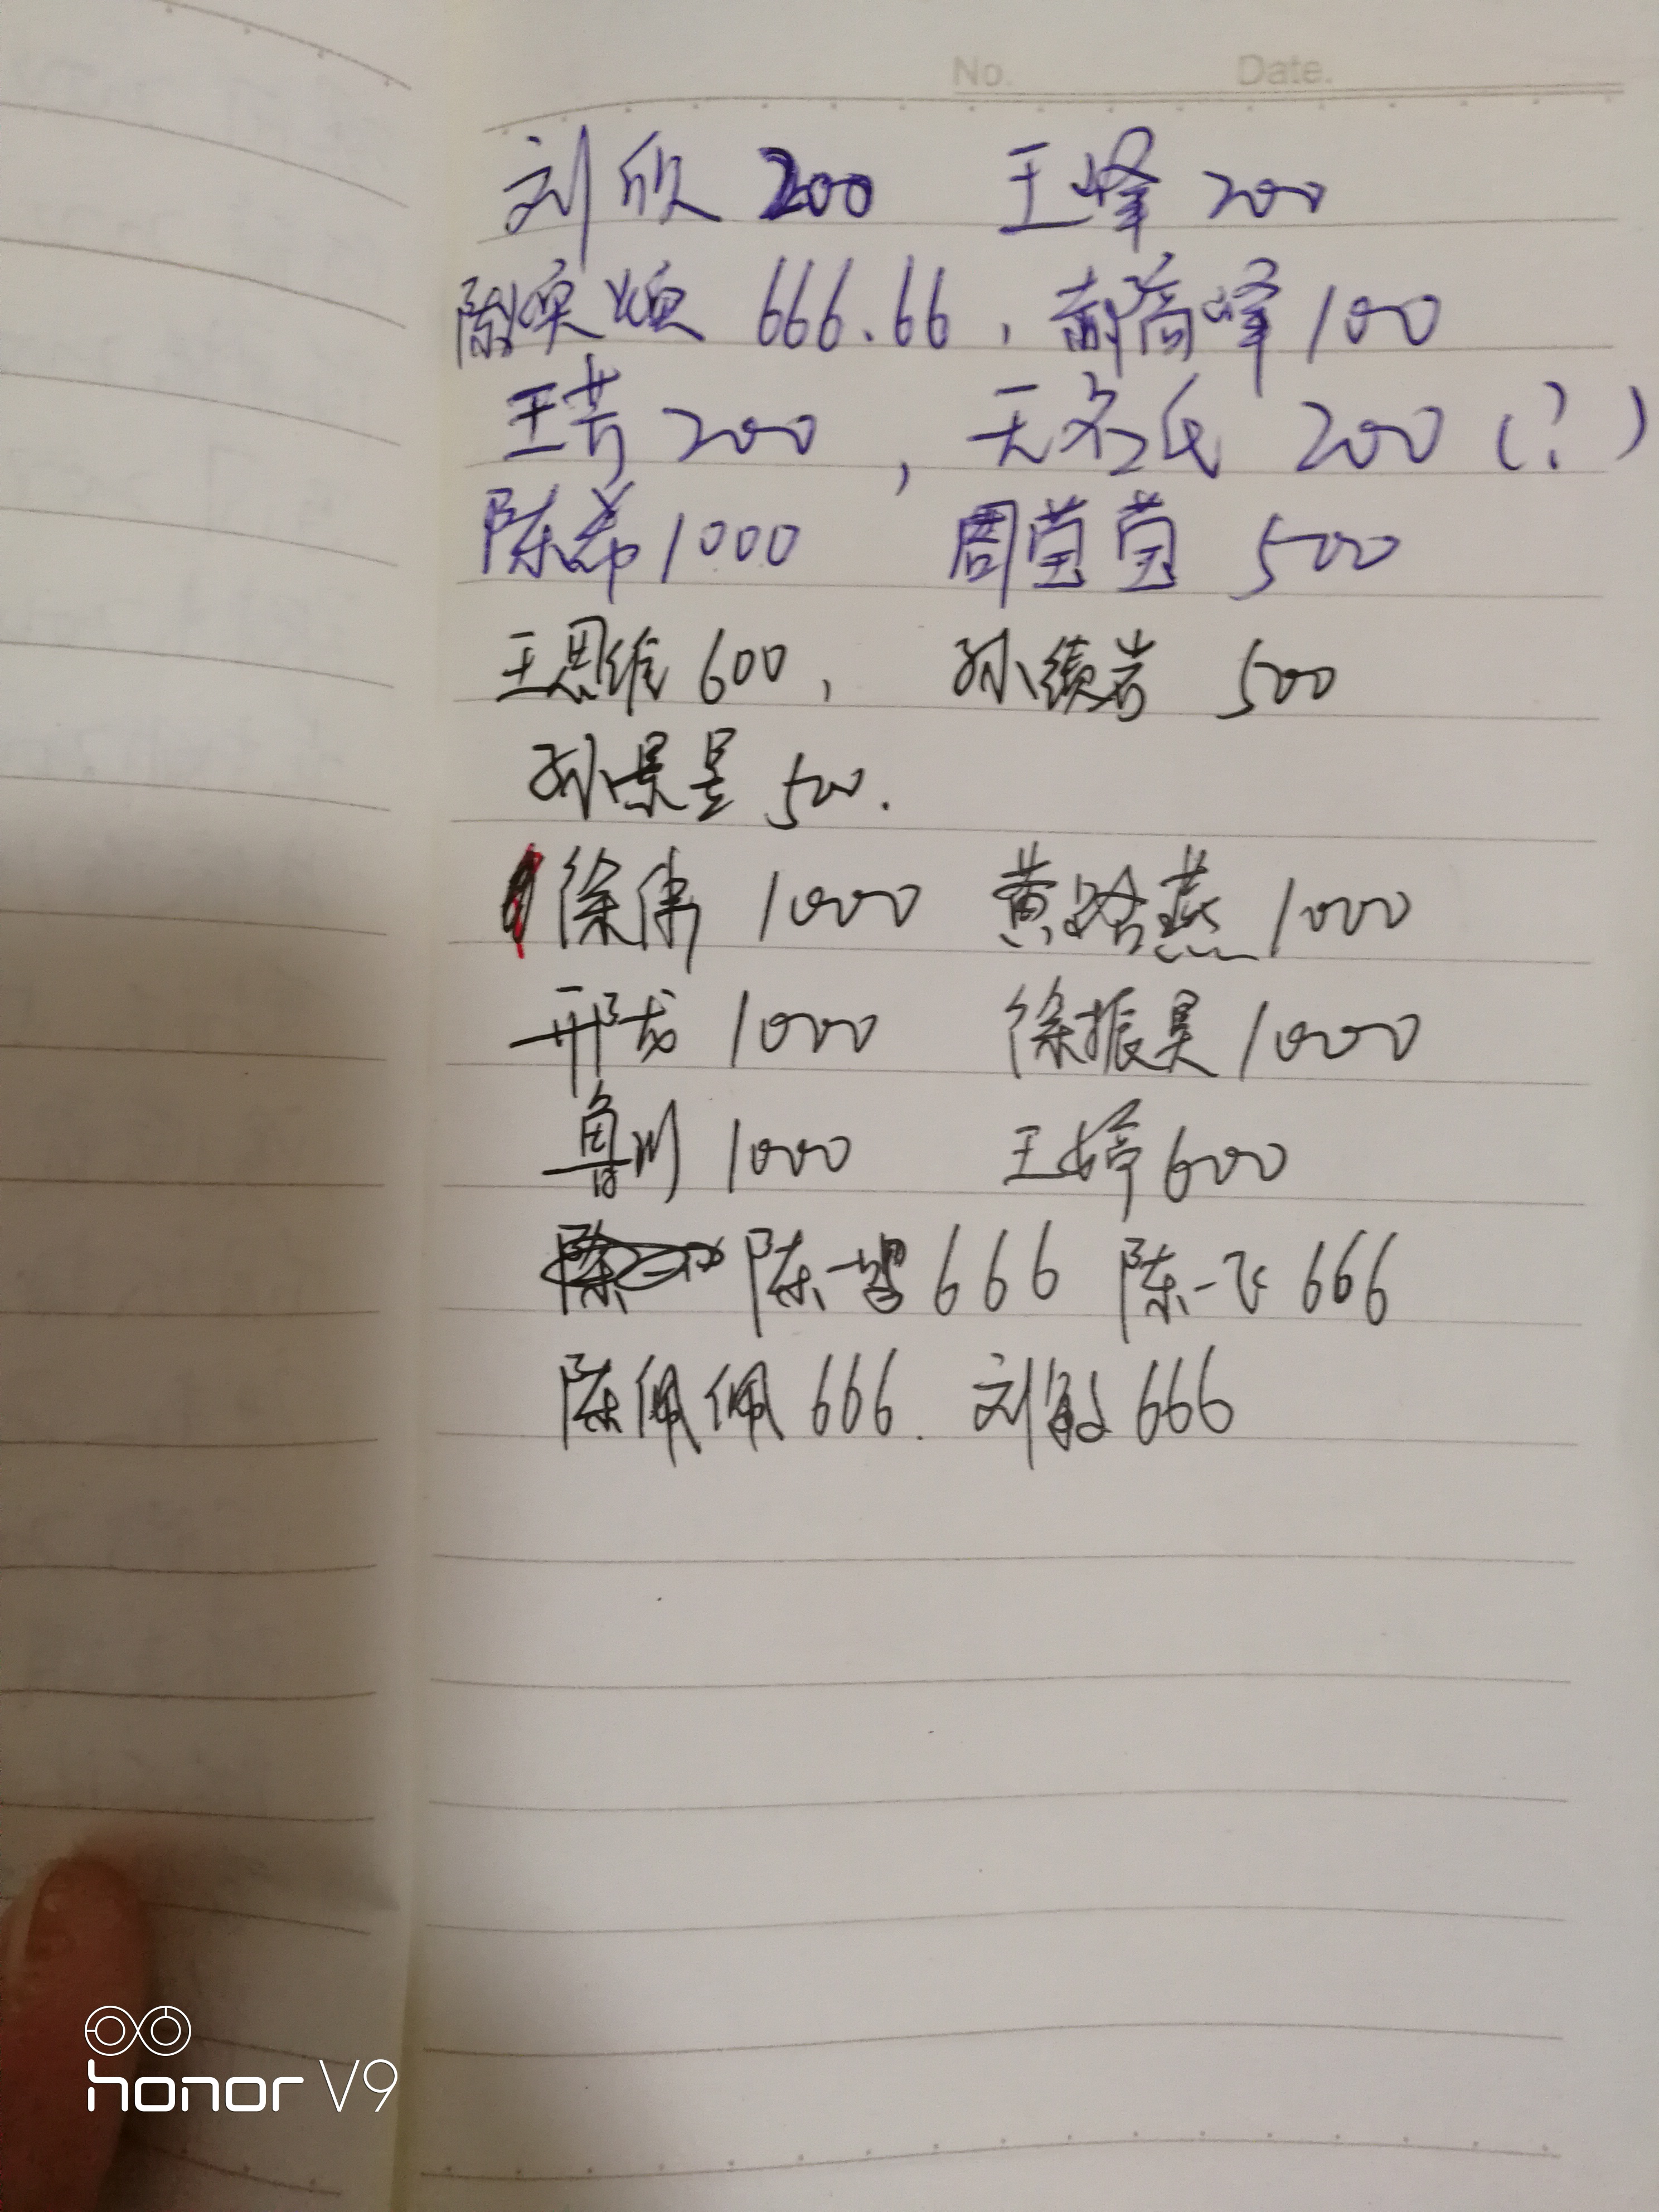 No. Date.
刘欣 200 王峰 200
陈奕 666.66, 郝高峰 100
王芳 200, 无名氏 200 (?)
陈希 1000 周莹莹 500
王思维 600, 孙绩岩 500
孙景昱 500.
徐伟 1000 黄路燕 1000
邢戈 1000 徐振昊 1000
鲁川 1000 王婷 600
陈一 666 陈一飞 666
陈佩佩 666. 刘敏 666
honor V9